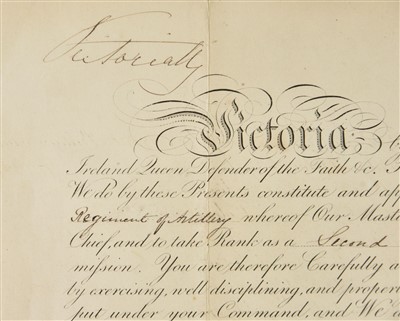 Victoria R
Victoria
Ireland Queen Defender of the Faith &c.
We do by these Presents constitute and app
Regiment of Artillery whereof Our Maste
Chief, and to take Rank as a Second
mission. You are therefore Carefully a
by exercising, well disciplining, and proper
put under your Command, and We d